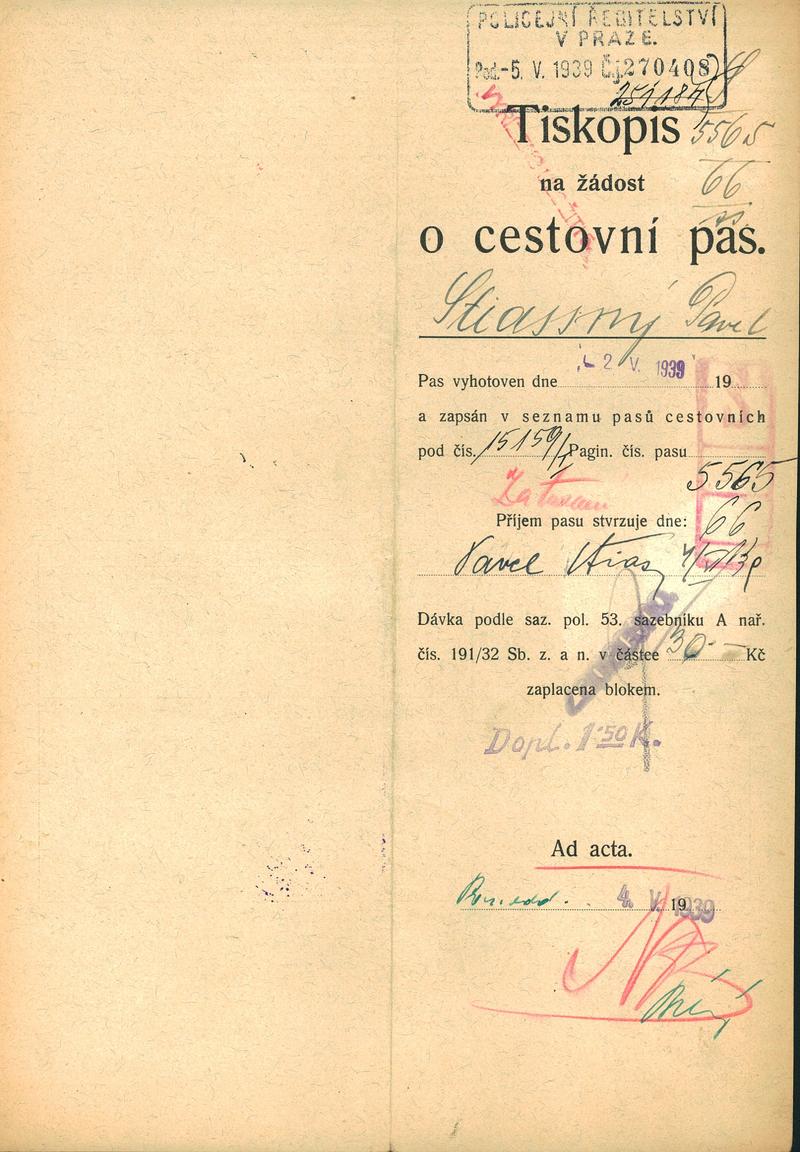 POLICEJNÍ ŘEDITELSTVÍ
V PRAZE.
Pod. -5. V. 1939 Čj. 270408
251184
Tiskopis 5565
na žádost 66
o cestovní pas.
Stiassný Pavel
Pas vyhotoven dne 2 V. 1939 19
a zapsán v seznamu pasů cestovních
pod čís. 15159/1 Pagin. čís. pasu
5565
Příjem pasu stvrzuje dne: 66
Pavel Stias
Dávka podle saz. pol. 53. sazebníku A nař.
čís. 191/32 Sb. z. a n. v částce 30.— Kč
zaplacena blokem.
Dopl. 1.50 K.
Ad acta.
4. V. 1939 19